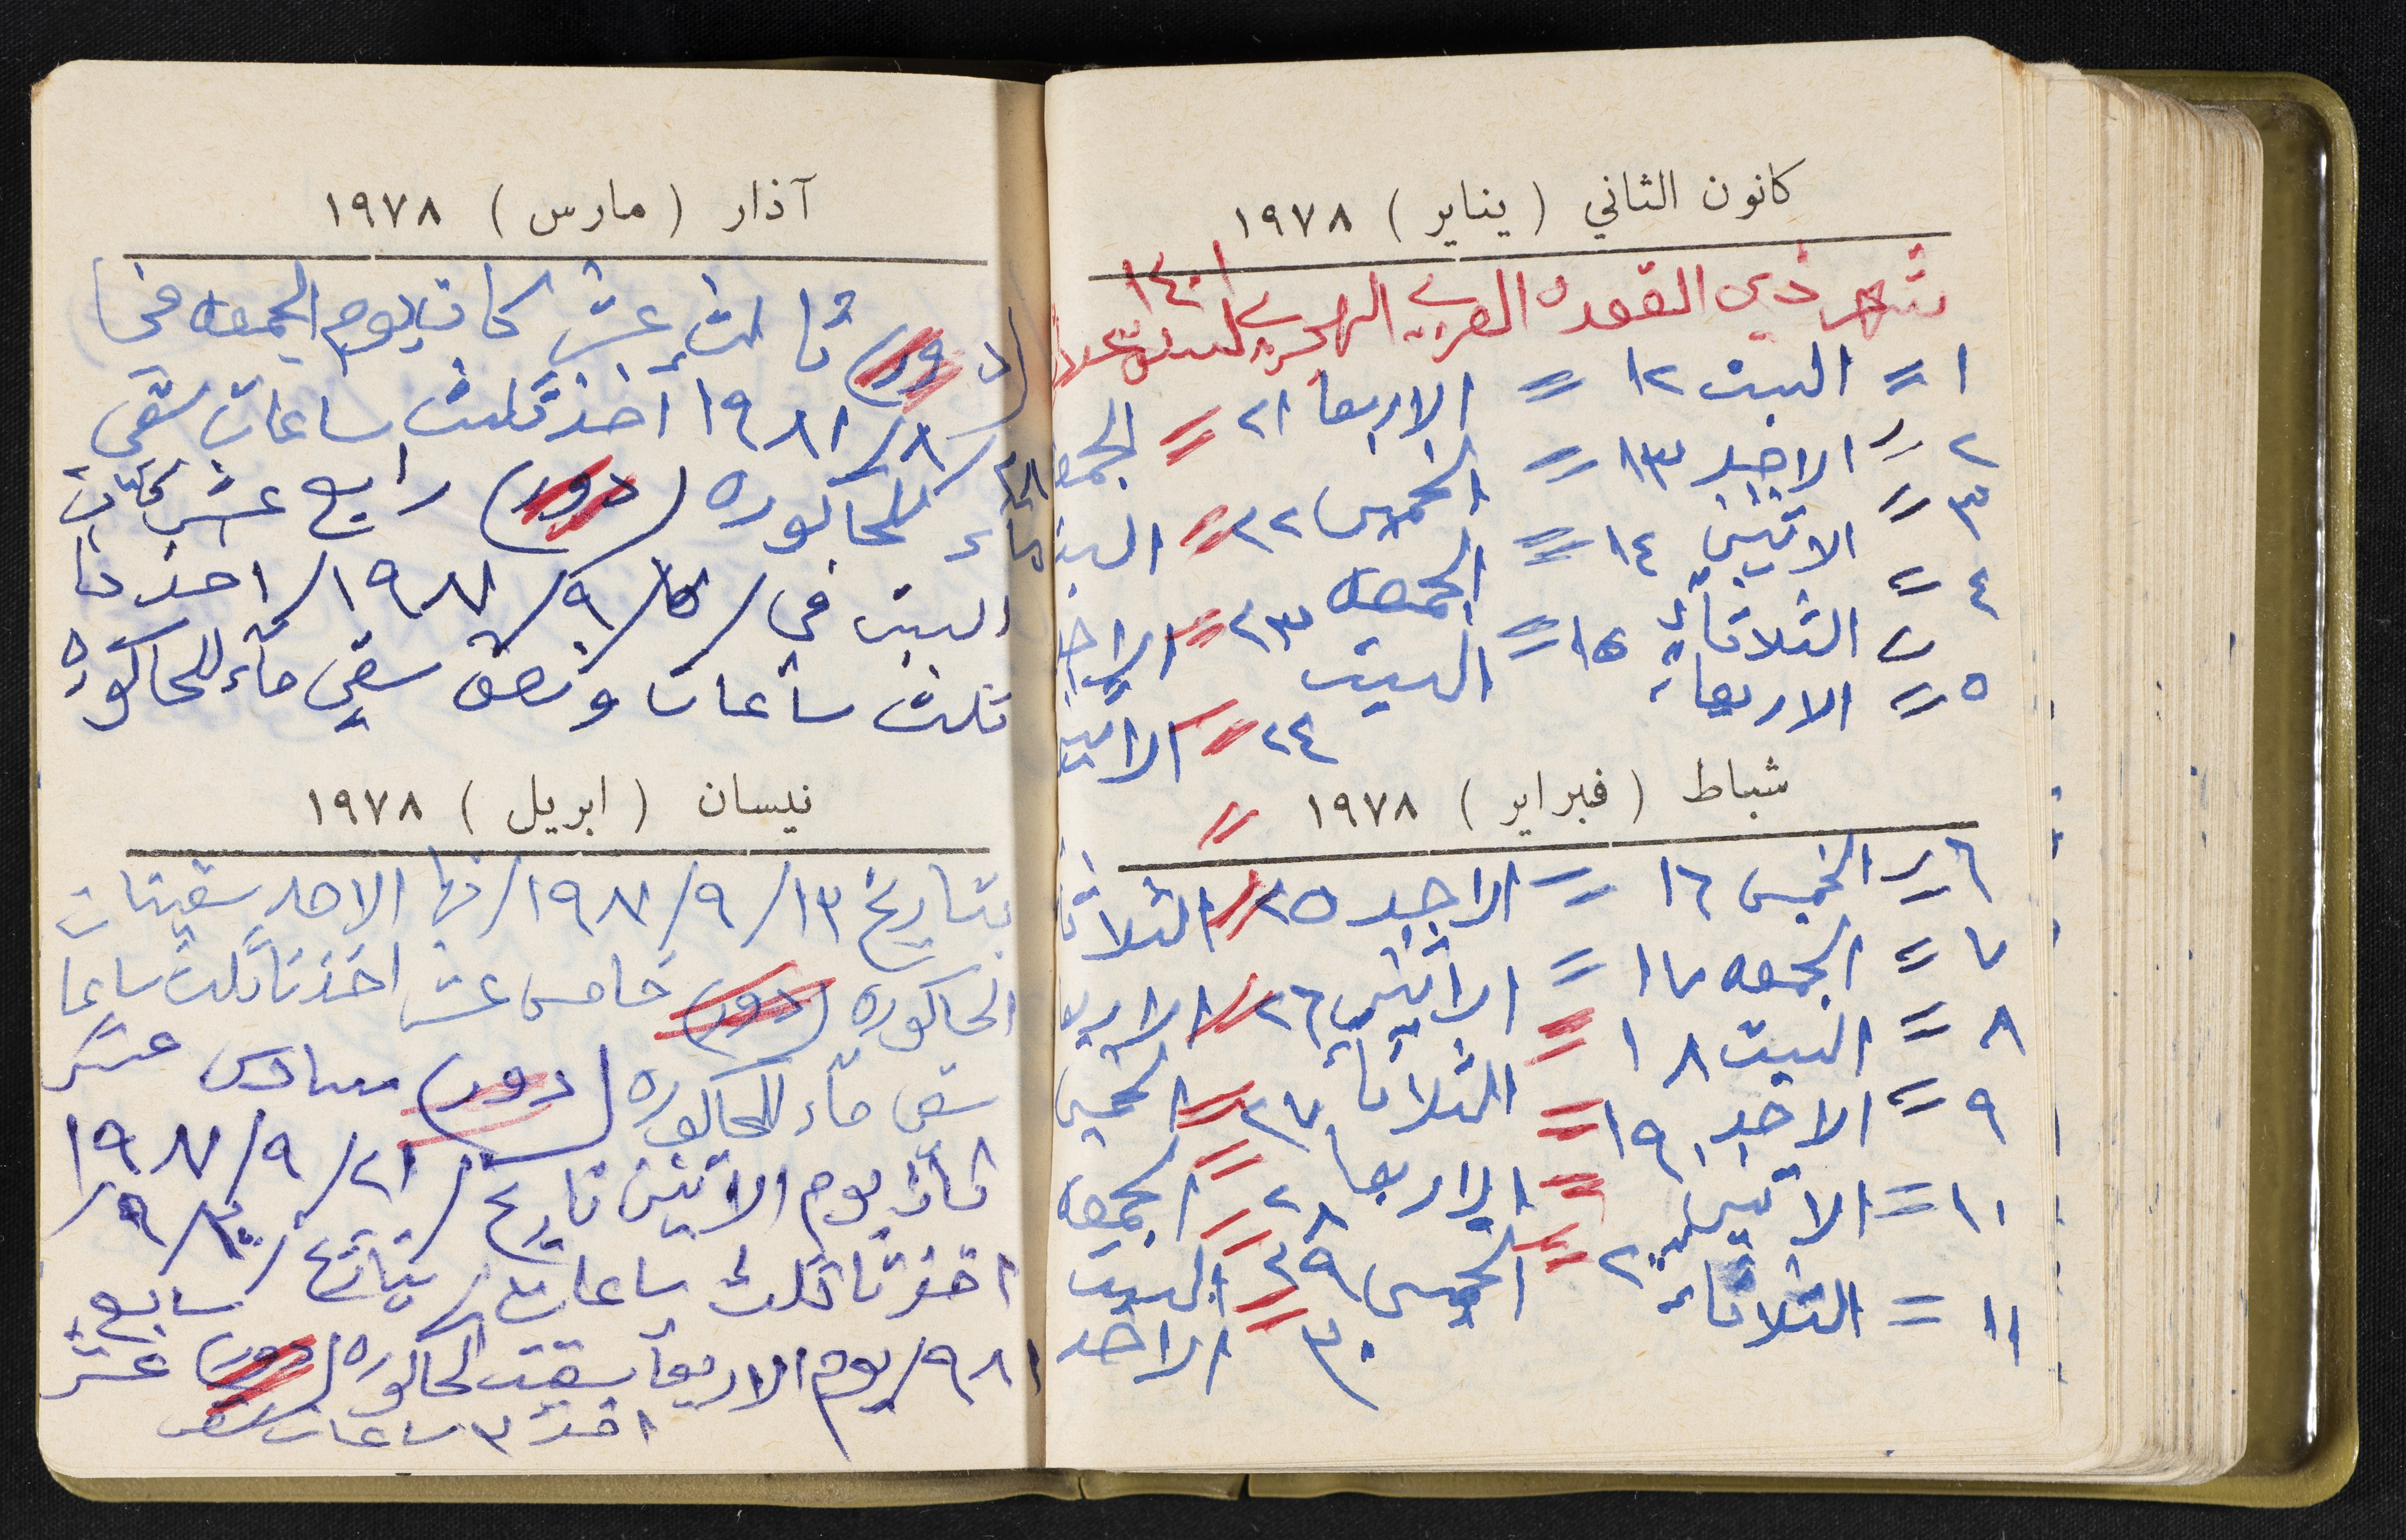 كانون الثاني ( يناير ) ١٩٧٨
شهر ذي القعده العربي الهجري لسنة ١٤٠١
١ = السبت ١٢ = الاربعا ٢١ = الجمعه
٢ = الاحد ١٣ = الخميس ٢٢ = السبت
٣ = الاثنين ١٤ = الجمعه ٢٣ = الاحد
٤ = الثلاثاء ١٥ = السبت ٢٤ = الاثنين
٥ = الاربعاء
شباط ( فبراير ) ١٩٧٨
٦ = الخميس ١٦ = الاحد ٢٥ = الثلاثا
٧ = الجمعه ١٧ = الاثنين ٢٦ = الاربعا
٨ = السبت ١٨ = الثلاثاء ٢٧ = الخميس
٩ = الاحد ١٩ = الاربعا ٢٨ = الجمعه
١٠ = الاثنين ٢٠ = الخميس ٢٩ = السبت
١١ = الثلاثاء ٣٠ = الاحد
آذار ( مارس ) ١٩٧٨
(دور) ثالث عشر كان يوم الجمعه في
٢٨/٨/١٩٨١ اخذ ثلث ساعات سقي
ماء للحاكوره (دور) رابع عشر كان
السبت في /٥/٩/١٩٨١/ اخذنا
ثلث ساعات ونصف سقي ماء للحاكوره
نيسان ( ابريل ) ١٩٧٨
بتاريخ ١٣/٩/١٩٨١/ نها الاحد سقيت
الحاكوره (دور) خامس عشر اخذنا ثلث ساعا
سقي ماء للحاكوره (دور) سادس عشر
كان يوم الاثنين تاريخ /٢١/٩/١٩٨١
اخذنا ثلث ساعات بتاريخ /٣٠/٩/
١٩٨١/يوم الاربعا سقيت الحاكوره (دور) سابع عشر
اخذ ٣ ساعات